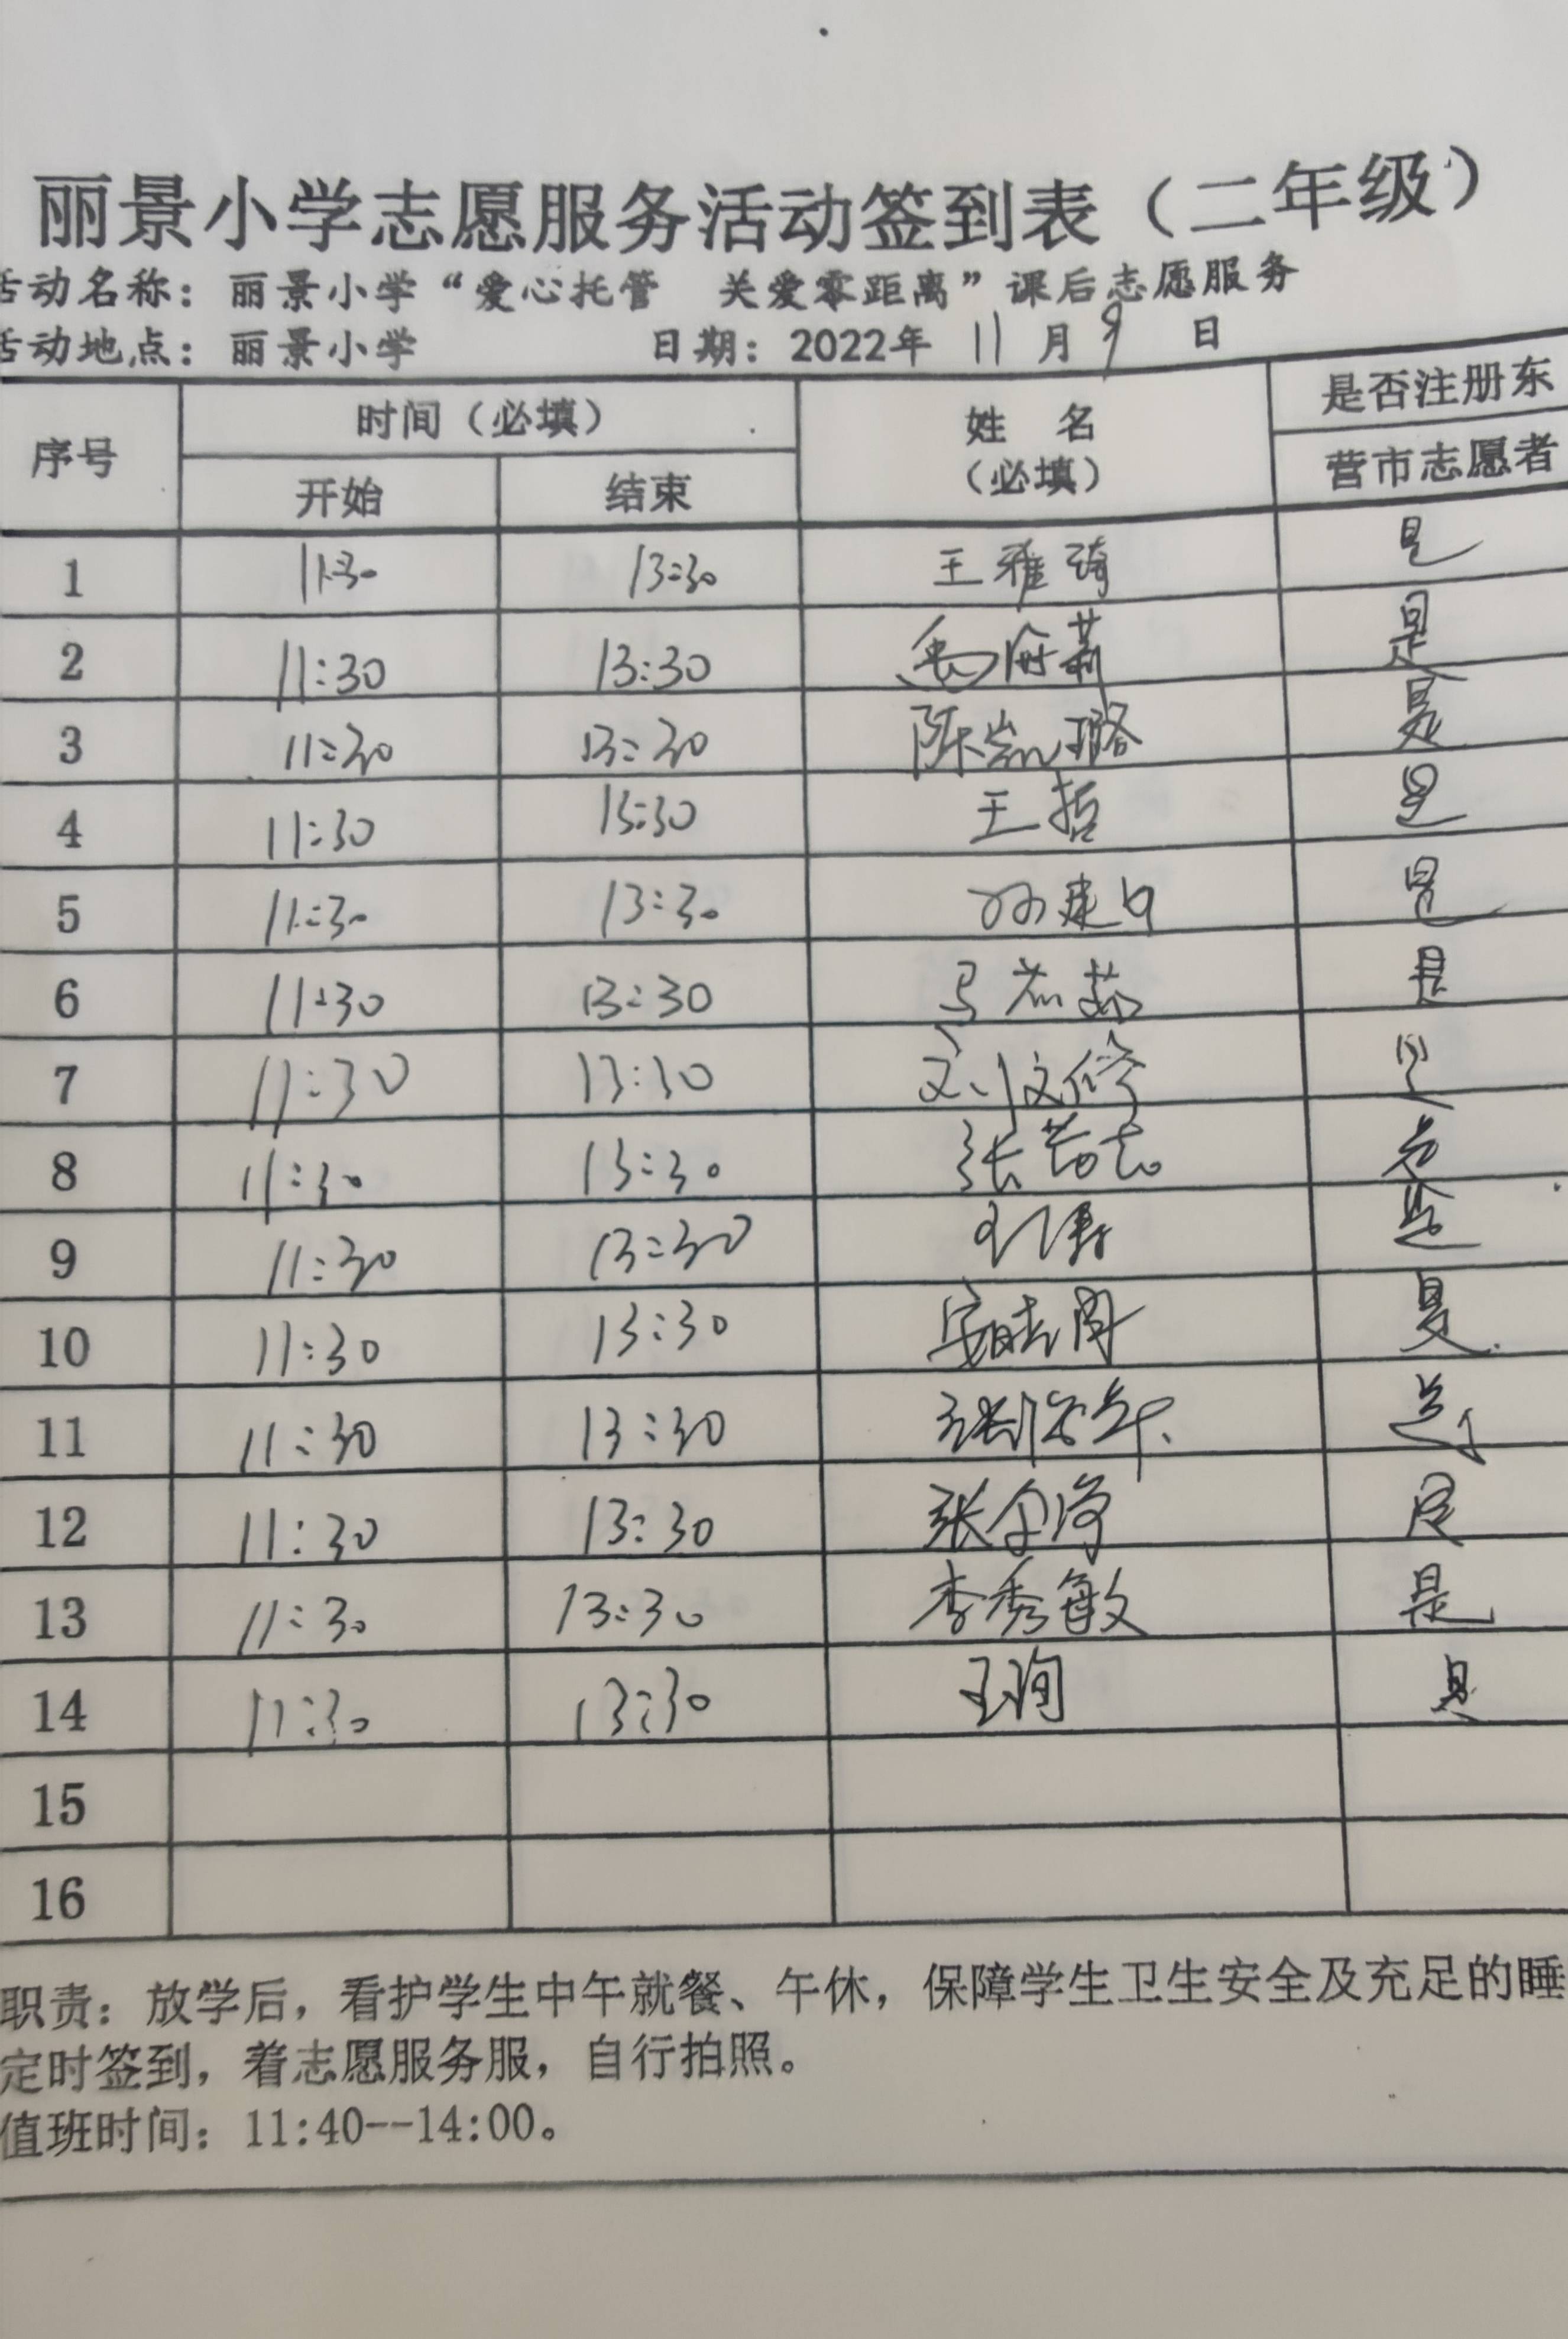 丽景小学志愿服务活动签到表（二年级）
活动名称：丽景小学“爱心托管 关爱零距离”课后志愿服务
活动地点：丽景小学 日期：2022年 11 月 9 日
序号 时间（必填） 姓 名（必填） 是否注册东
开始 结束 营市志愿者
1 11:30 13:30 王雅琦 是
2 11:30 13:30 是
3 11:30 13:30 陈凯璐 是
4 11:30 13:30 王哲 是
5 11:30 13:30 是
6 11:30 13:30 是
7 11:30 13:30 刘文修 是
8 11:30 13:30 张 是
9 11:30 13:30 是
10 11:30 13:30 是
11 11:30 13:30 张 是
12 11:30 13:30 张 是
13 11:30 13:30 李秀敏 是
14 11:30 13:30 王珣 是
15
16
职责：放学后，看护学生中午就餐、午休，保障学生卫生安全及充足的睡
定时签到，着志愿服务服，自行拍照。
值班时间：11:40--14:00。